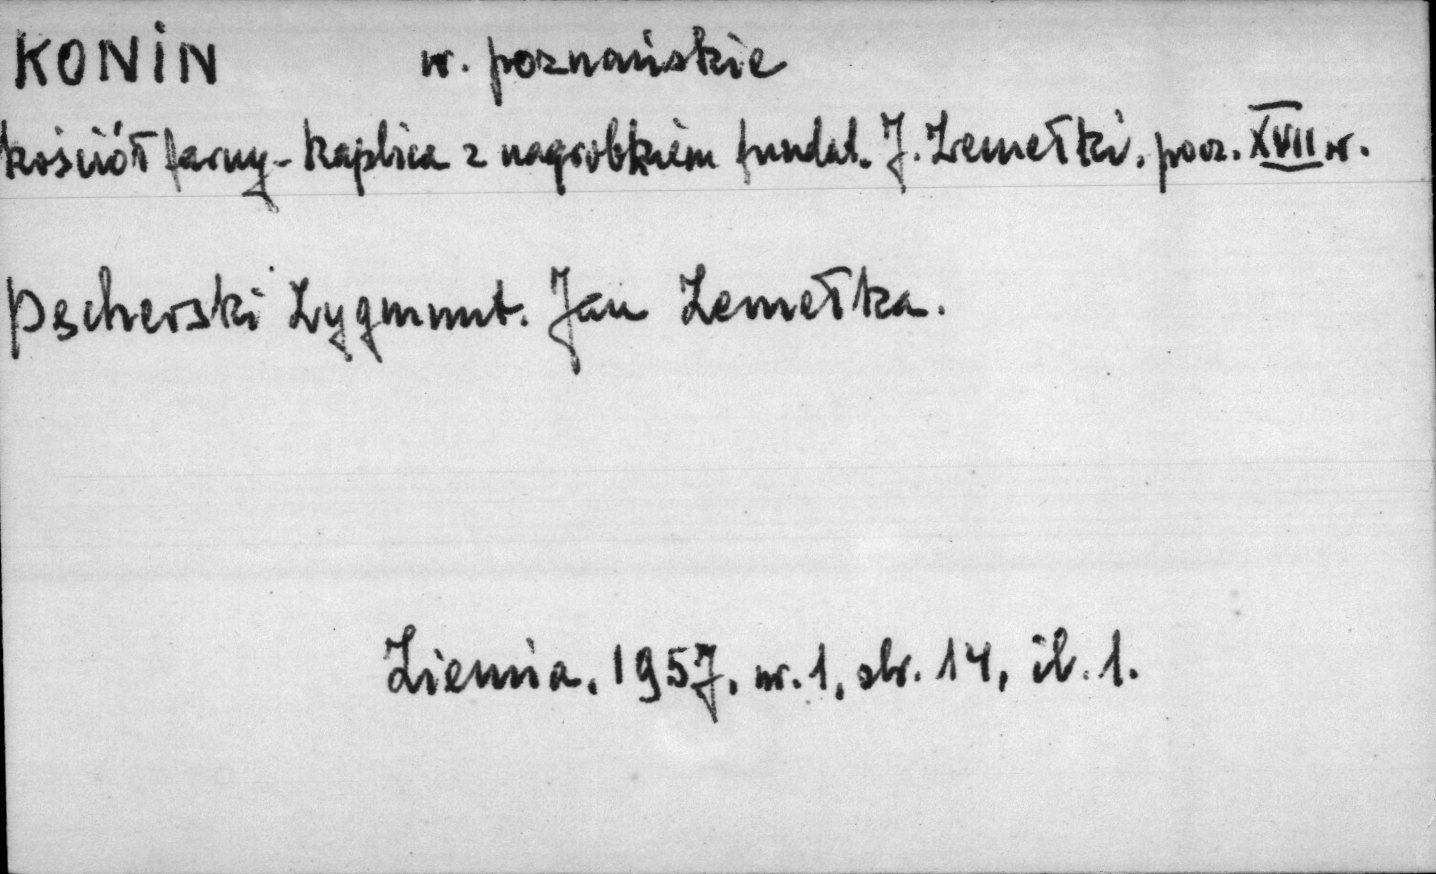 KONIN w. poznańskie
kościół farny - kaplica z nagrobkiem fundat. J. Zemełki. pocz. XVII w.
Pęcherski Zygmunt. Jan Zemełka.
Ziemia. 1957. nr. 1, str. 14, il. 1.